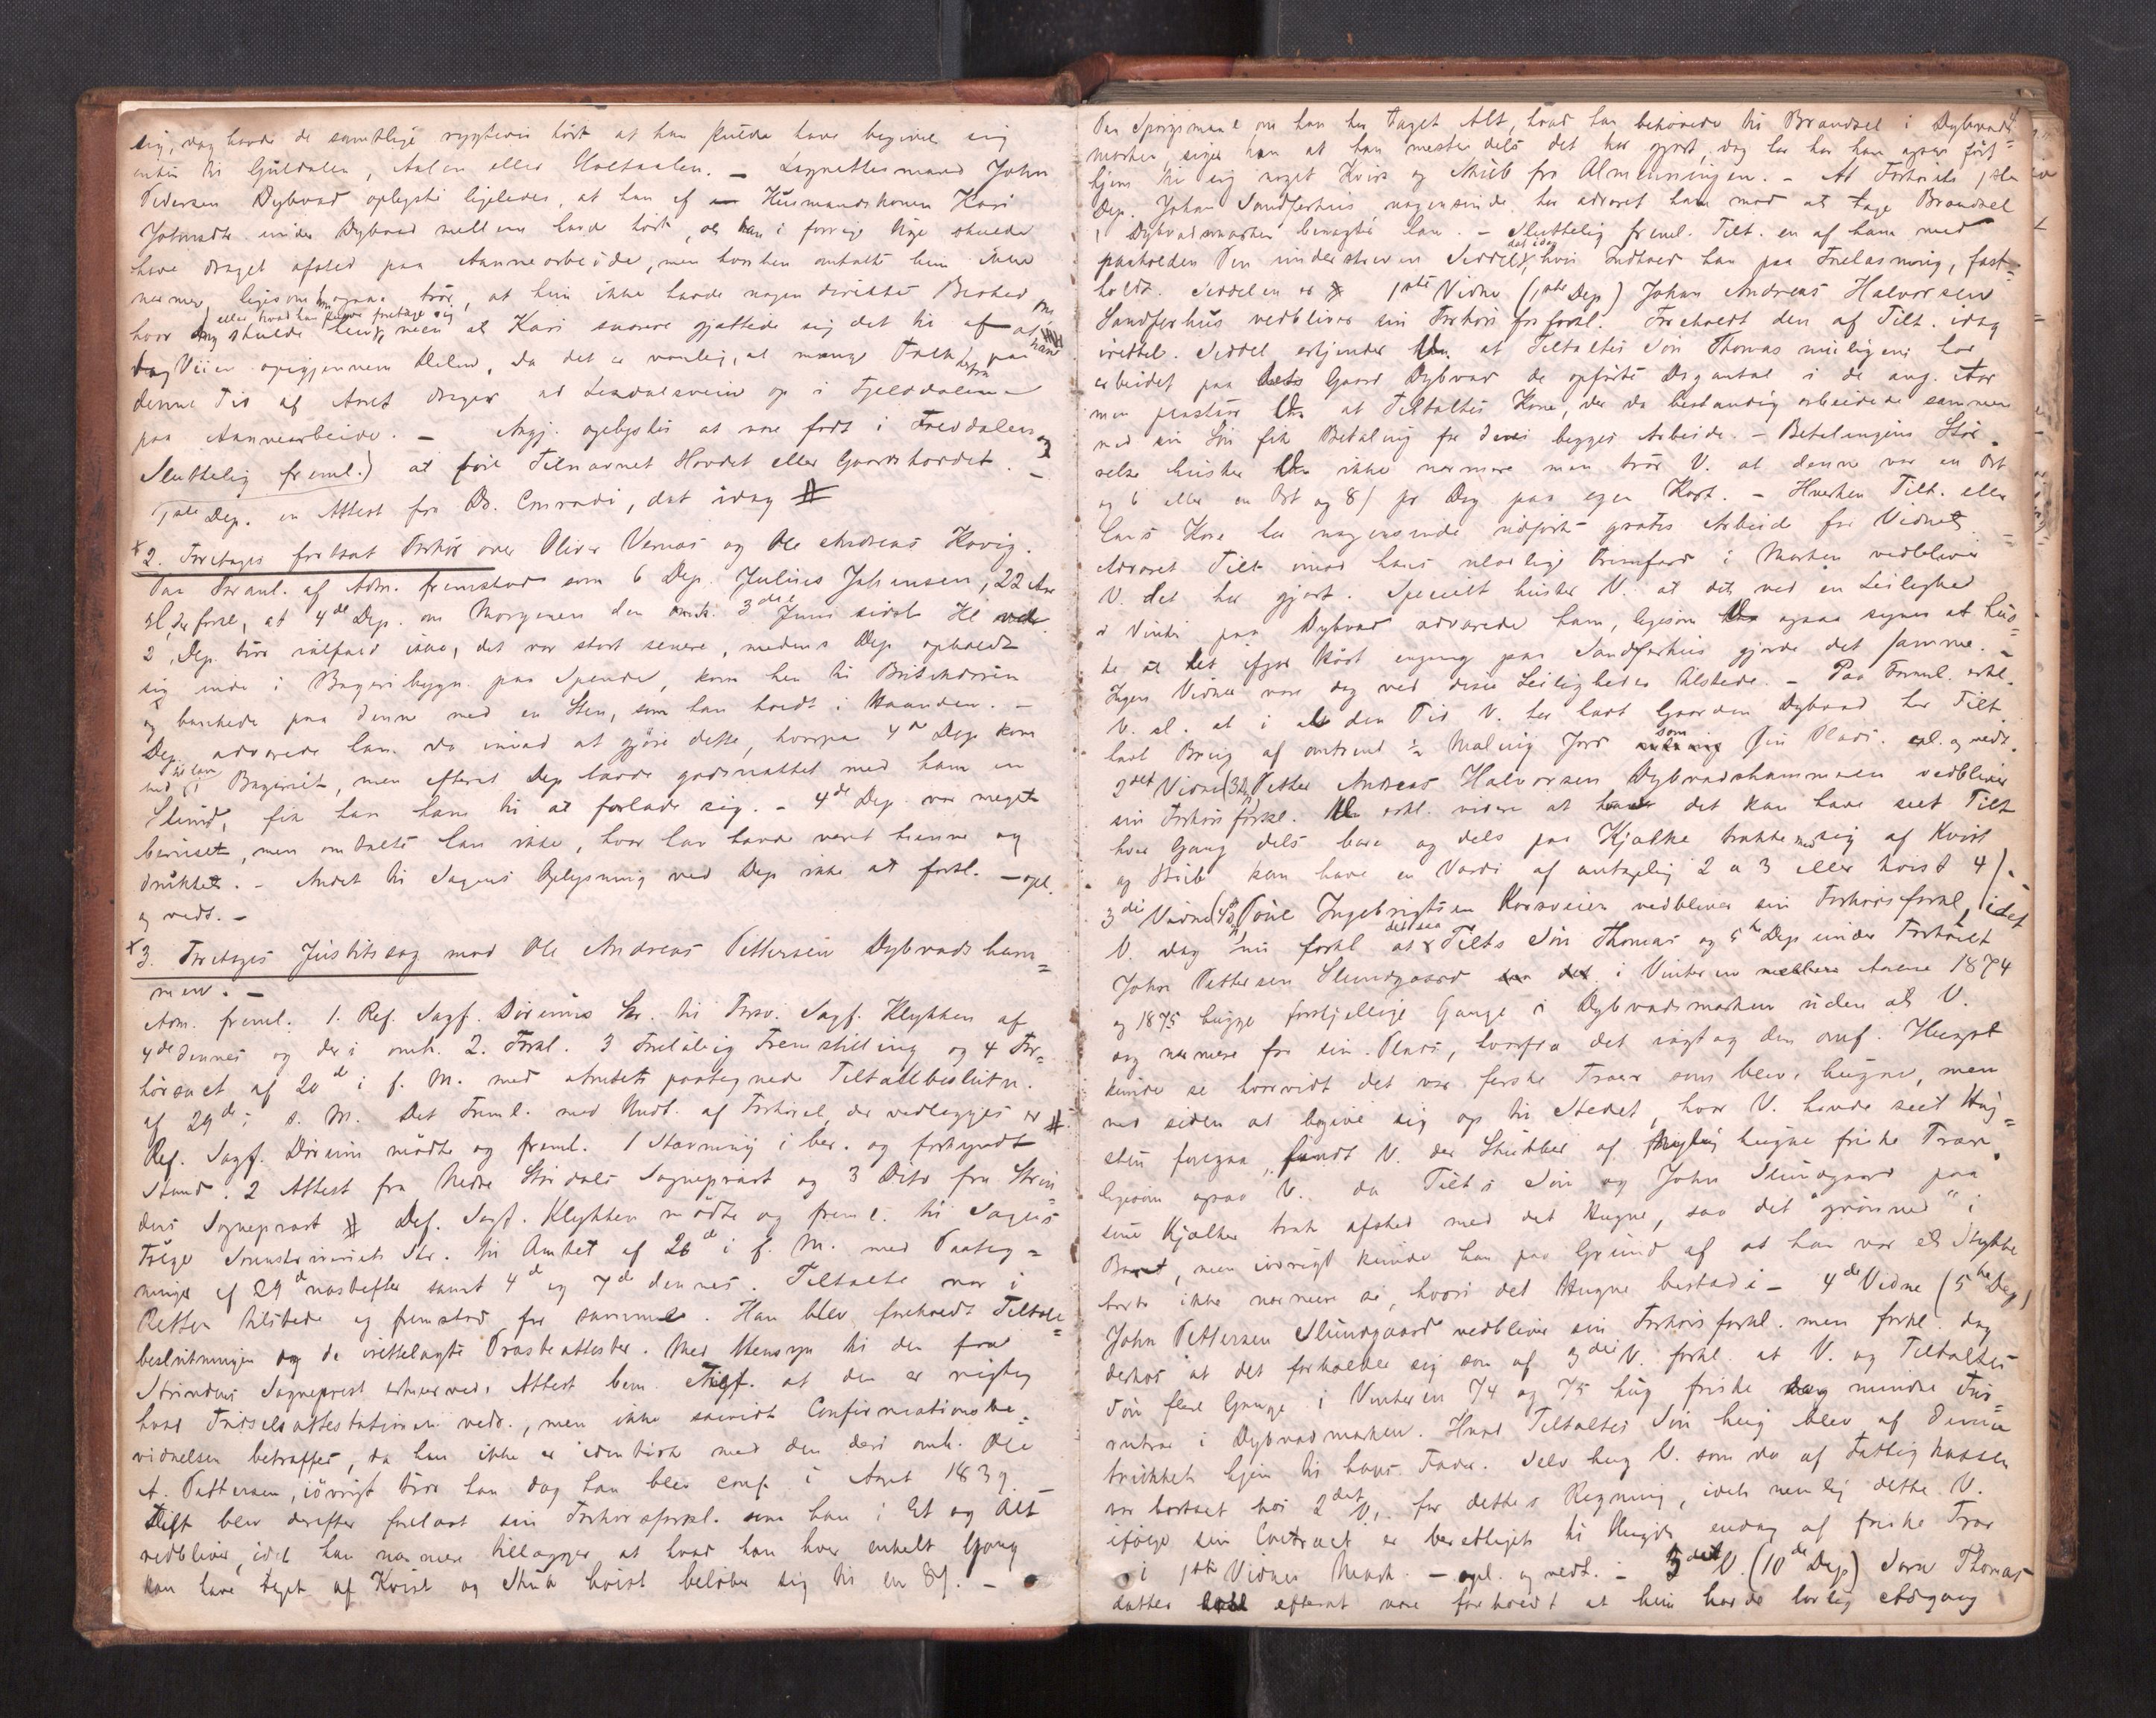 sig, dog havde de samtlige rygteviis hørt at han skulde have begivet sig
enten til Guldalen, Aalen eller Holtaalen. — Lagrettesmand John
Pedersen Dybvad oplyste ligeledes, at han af Husmandskonen Kari
Johnsdtr. under Dybvad mellem havde hørt, at han i forrige Uge skulde
have draget afsted paa Aannearbeide, men hvorhen omtalte hun ikke
nærmere, ligesom han ogsaa troer, at hun ikke havde nogen direkte Besked om
hvor han skulde hen eller hvad han skulde foretage sig, men at Kari snarere gjættede sig det til af at han
tog Veien opigjennem Dalen, da det er vanlig, at mange Folk herfra paa
denne Tid af Aaret drager ad Lexdalsveien op i Fjelddalene
paa Aannearbeide. — Angj. oplystes at være født i Fredsdalen og
Sluttelig freml.) at føre Tilnavnet Hovdet eller Gaardshovdet. —
1ste Dep. en Attest fra Dr. Conradi, dat. idag #
x 2. Foretages fortsat Forhør over Oliver Vernæs og Ole Andreas Hovig.
Paa Foranl. af Adm. fremstod som 6 Dep. Julius Johansen, 22 Aar
gl., der forkl., at 4de Dep. om Morgenen den omh. 3die Juni sidst Kl.
2, Dep. tror ialfald ikke, det var stort senere, medens Dep. opholdt
sig inde i Bageribygn. paa Spender, kom hen til Butiksdøren
og bankede paa denne med en Sten, som han holdt i Haanden. —
Dep. advarede ham da imod at gjøre dette, hvorpaa 4de Dep. kom
ind til ham i Bageriet, men efterat Dep. havde godsnakket med ham en
Stund, fik han ham til at forlade sig. — 4de Dep. var meget
beruset, men omtalte han ikke, hvor han havde været henne og
drukket. — Andet til Sagens Oplysning ved Dep. ikke at forkl. — opl.
og vedt. —
x 3. Foretages Justitssag mod Ole Andreas Pettersen Dybvadsham=
meren. —
Adm. freml. 1. Ref. Sagf. Døreims Skr. til Forsv. Sagf. Klykken af
4de dennes og deri omh. 2. Forkl. 3 Foreløbig Fremstilling og 4 For=
hørsact af 20de i f. M. med Amtets paategnede Tiltalebeslutn.
af 29de s. M. Det Freml. med Undt. af Forhøret, der vedlægges er #
Ref. Sagf. Døreim mødte og freml. 1 Stævning i ber. og forkyndt
Stand. 2 Attest fra Nedre Stjørdals Sogneprest og 3 Dito fra Strin=
dens Sogneprest # Def. Sagf. Klykken mødte og freml. til Sagens
Følge Sorenskriveriets Skr. til Amtet af 26de i f. M. med Paateg=
ninger af 29de næstefter samt 4de og 7de dennes. Tiltalte var i
Retten tilstede og fremstod for samme. Han blev foreholdt Tiltale=
beslutningen og de irettelagte Præsteattester. Med Hensyn til den fra
Strindens Sogneprest erhvervede Attest bem. Tilt. at den er rigtig
hvad Fødselsattestationen vedk., men ikke saavidt Confirmationsbe=
vidnelsen betræffer, da han ikke er identisk med den deri omh. Ole
A. Pettersen, iøvrigt tror han dog han blev conf. i Aaret 1839. —
Tilt. blev derefter forelæst sin Forhørsforkl. som han i Et og Alt
vedbliver, idet han nærmere tillægger at hvad han hver enkelt Gang
kan have taget af Kvist og Stub høist beløber sig til en 8ß. —
Paa Spørgsmaal om han har taget Alt, hvad han behøvede til Brændsel i Dybvads=
marken, siger han at han mestendels det har gjort, dog har han ogsaa ført
hjem til sig noget Kvist og Stub fra Almenningen. — At Forhørets 1ste
Dep. Johan Sandferhus nogensinde har advaret ham mod at tage Brændsel
i Dybvadsmarken benægter han. — Sluttelig freml. Tilt. en af ham med
paaholden Pen underskreven Seddel dat. idag, hvis Indhold han paa Forelæsning, fast=
holdt. Seddelen er # 1ste Vidne (1ste Dep.) Johan Andreas Halvorsen
Sandferhus vedbliver sin Forhørsforkl. Foreholdt den af Tilt. idag
irettel. Seddel erkjender V. at Tiltaltes Søn Thomas muligens har
arbeidet paa Gaard Dybvad de opførte Dagantal i de ang. Aar
men paastaar V. at Tiltaltes Kone, der da bestandig arbeidede sammen
med sin Søn fik Betaling for deres begges Arbeide. — Betalingens Stør=
relse husker V. ikke nærmere men tror V. at denne var en Ort
og 6 eller en Ort og 8ß pr. Dag paa egen Kost. — Hverken Tilt. eller
hans Kone har nogensinde udført gratis Arbeide for Vidnet. —
Advaret Tilt. imod hans ulovlige Fremfærd i Marken vedbliver
V. det har gjort. Specielt husker V. at det ved en Leilighed
i Vinter paa Dybvad advarede ham, ligesom V. ogsaa synes at hus=
ke at det ifjor Høst engang paa Sandferhus gjorde det samme. —
Ingen Vidner vare dog ved disse Leiligheder tilstede. — Paa Formal. erkl.
V. at i al den Tid V. har havt Gaarden Dybvad har Tilt.
havt Brug af omtrent ½ Maling Jord som sin Plads. opl. og vedt.
2det Vidne (3die Dep.) Petter Andreas Halvorsen Dybvadshammeren vedbliver
sin Forhørsforkl. V. erkl. videre at det kan have seet Tilt.
hver Gang dels bære og dels paa Kjælke trække med sig af Kvist
og Stub kan have en Værdi af antagelig 2 a 3 eller høist 4ß. —
3die Vidne (4de Dep.) Ingebrigtsen Korsveien vedbliver sin Forhørsforkl., idet
V. dog nu forkl. at det saa Tilts Søn Thomas og 5te Dep. under Forhøret
John Pettersen Slundgaard i Vinteren mellem Aarene 1874
og 1875 hugge forskjellige Gange i Dybvadsmarken uden at V.
sig nærmere fra sin Plads, hvorfra det iagttog den omf. Hugst
kunde se hvorvidt det var ferske Træer som blev hugne, men
ved siden at begive sig op til Stedet, hvor V. havde seet Hug=
sten foregaa, fandt V. der Stubber af nylig hugne friske Træer
ligesom ogsaa V. da Tilts Søn og John Slundgaard paa
sine Kjælker trak afsted med det Hugne, saa det "grønned" i
Baret, men iøvrigt kunde han paa Grund af at han var et Stykke
borte ikke nærmere se, hvori det Hugne bestod i — 4de Vidne (5te Dep.)
John Pettersen Slundgaard vedbliver sin Forhørsforkl. men forkl. dog
derhos at det forholder sig som af 3die V. forkl. at V. og Tiltaltes
Søn flere Gange i Vinteren 74 og 75 hug friske dog mindre Fur=
rutrær i Dybvadmarken. Hvad Tiltaltes Søn hug blev af denne
trukket hjem til hans Fader. Selv hug V. som da af Fattigkassen
var bortsat hos 2det V., for dettes Regning, idet nemlig dette V.
ifølge sin Contract er berettiget til Hugst endog af friske Trær
i 1ste Vidnes Mark. — opl. og vedt. — 5te V. (10de Dep.) Sara Thomas=
datter efterat være foreholdt at hun havde lovlig Adgang